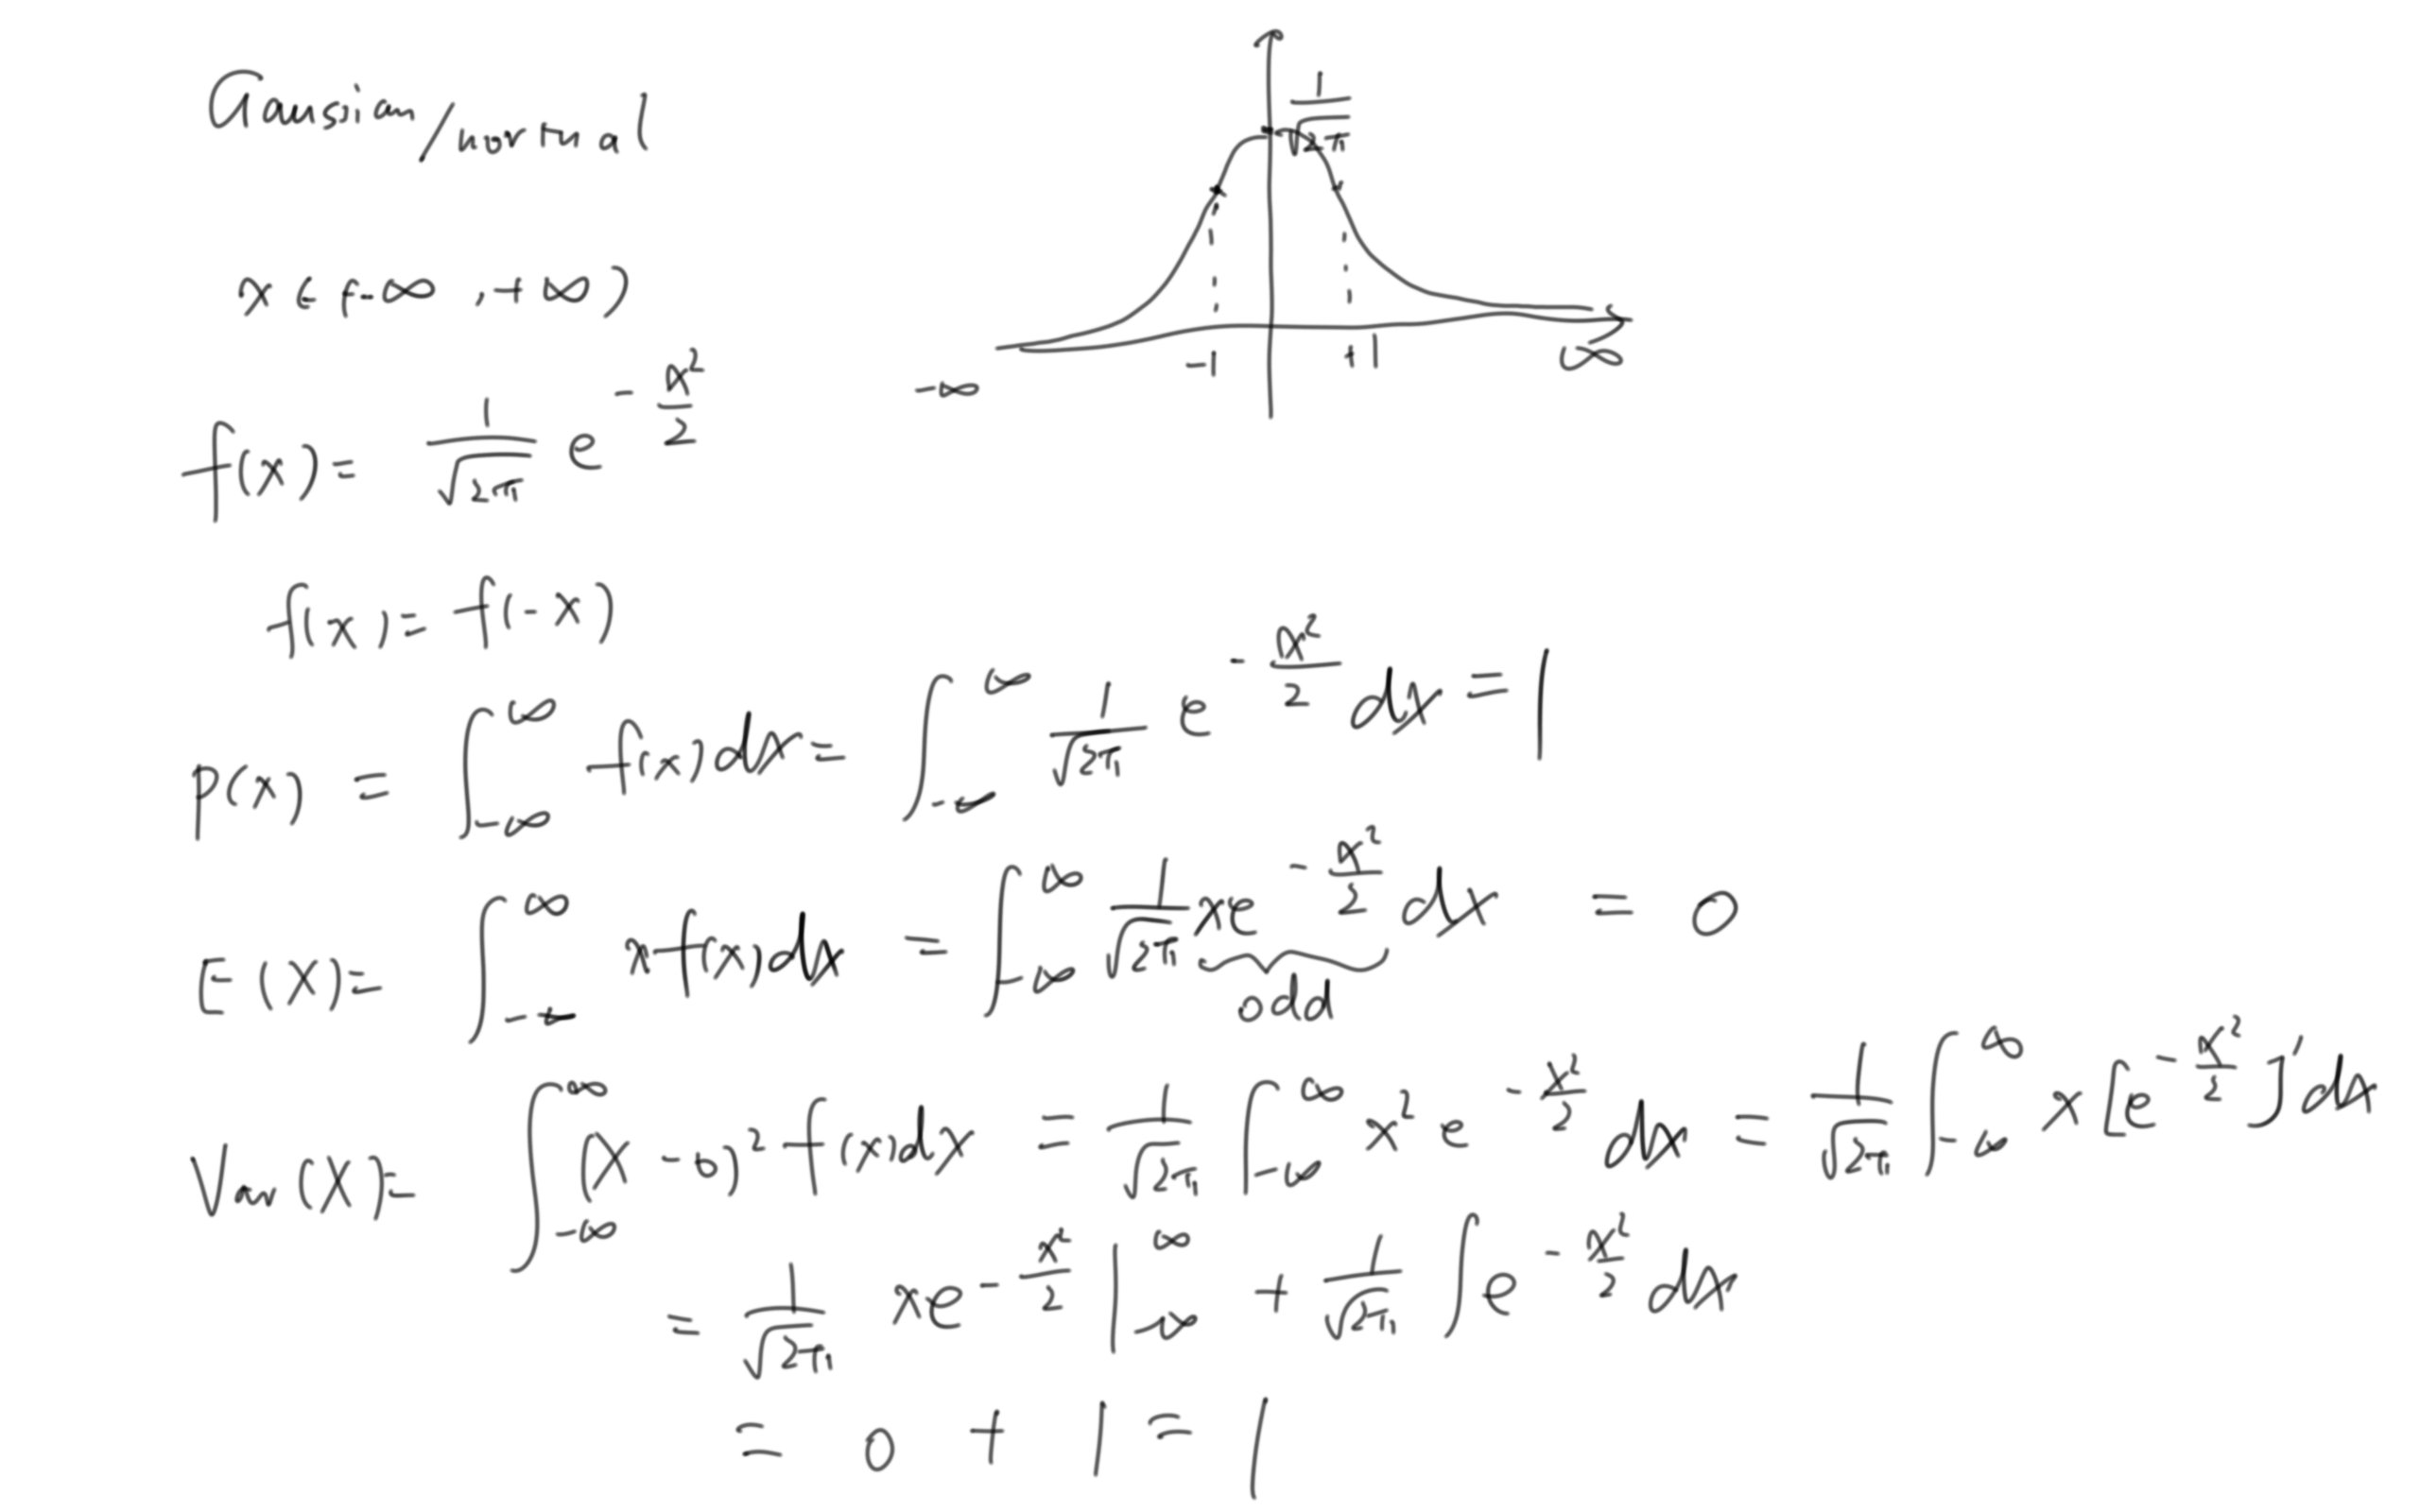 Gaussian/normal
1/√2π
x ∈ (-∞, +∞)
-1 +1 ∞
-∞
f(x) = 1/√2π e^(-x²/2)
f(x) = f(-x)
P(x) = ∫_{-∞}^{∞} f(x)dx = ∫_{-∞}^{∞} 1/√2π e^(-x²/2) dx = 1
E(X) = ∫_{-∞}^{∞} xf(x)dx = ∫_{-∞}^{∞} 1/√2π xe^(-x²/2) dx = 0
odd
Var(X) = ∫_{-∞}^{∞} (X-0)² f(x)dx = 1/√2π ∫_{-∞}^{∞} x² e^(-x²/2) dx = 1/√2π ∫_{-∞}^{∞} x[e^(-x²/2)]' dx
= 1/√2π xe^(-x²/2) |_{-∞}^{∞} + 1/√2π ∫ e^(-x²/2) dx
= 0 + 1 = 1